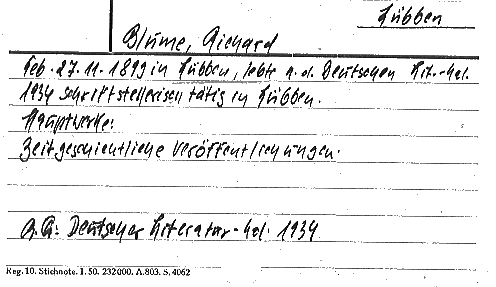 Lübben
Blume, Richard
Geb. 27.11.1899 in Lübben, lebte n. d. Deutschen Lit.-Kal.
1934 schriftstellerisch tätig in Lübben.
Hauptwerke:
Zeitgeschichtliche Veröffentlichungen.
A.Q.: Deutscher Literatur-Kal. 1934
Reg. 10. Stichnote. I. 50. 232000. A.803. S. 4062